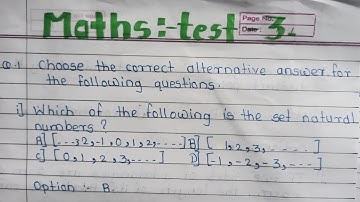 Maths:-test 3.
Page No.
Date:
Q.1 Choose the correct alternative answer for
the following questions.
i] Which of the following is the set natural
numbers?
A] [...,-2,-1,0,1,2,....] B] [ 1,2,3,......]
C] [0,1,2,3,....] D] [-1,-2,-3,...]
Option :- B.